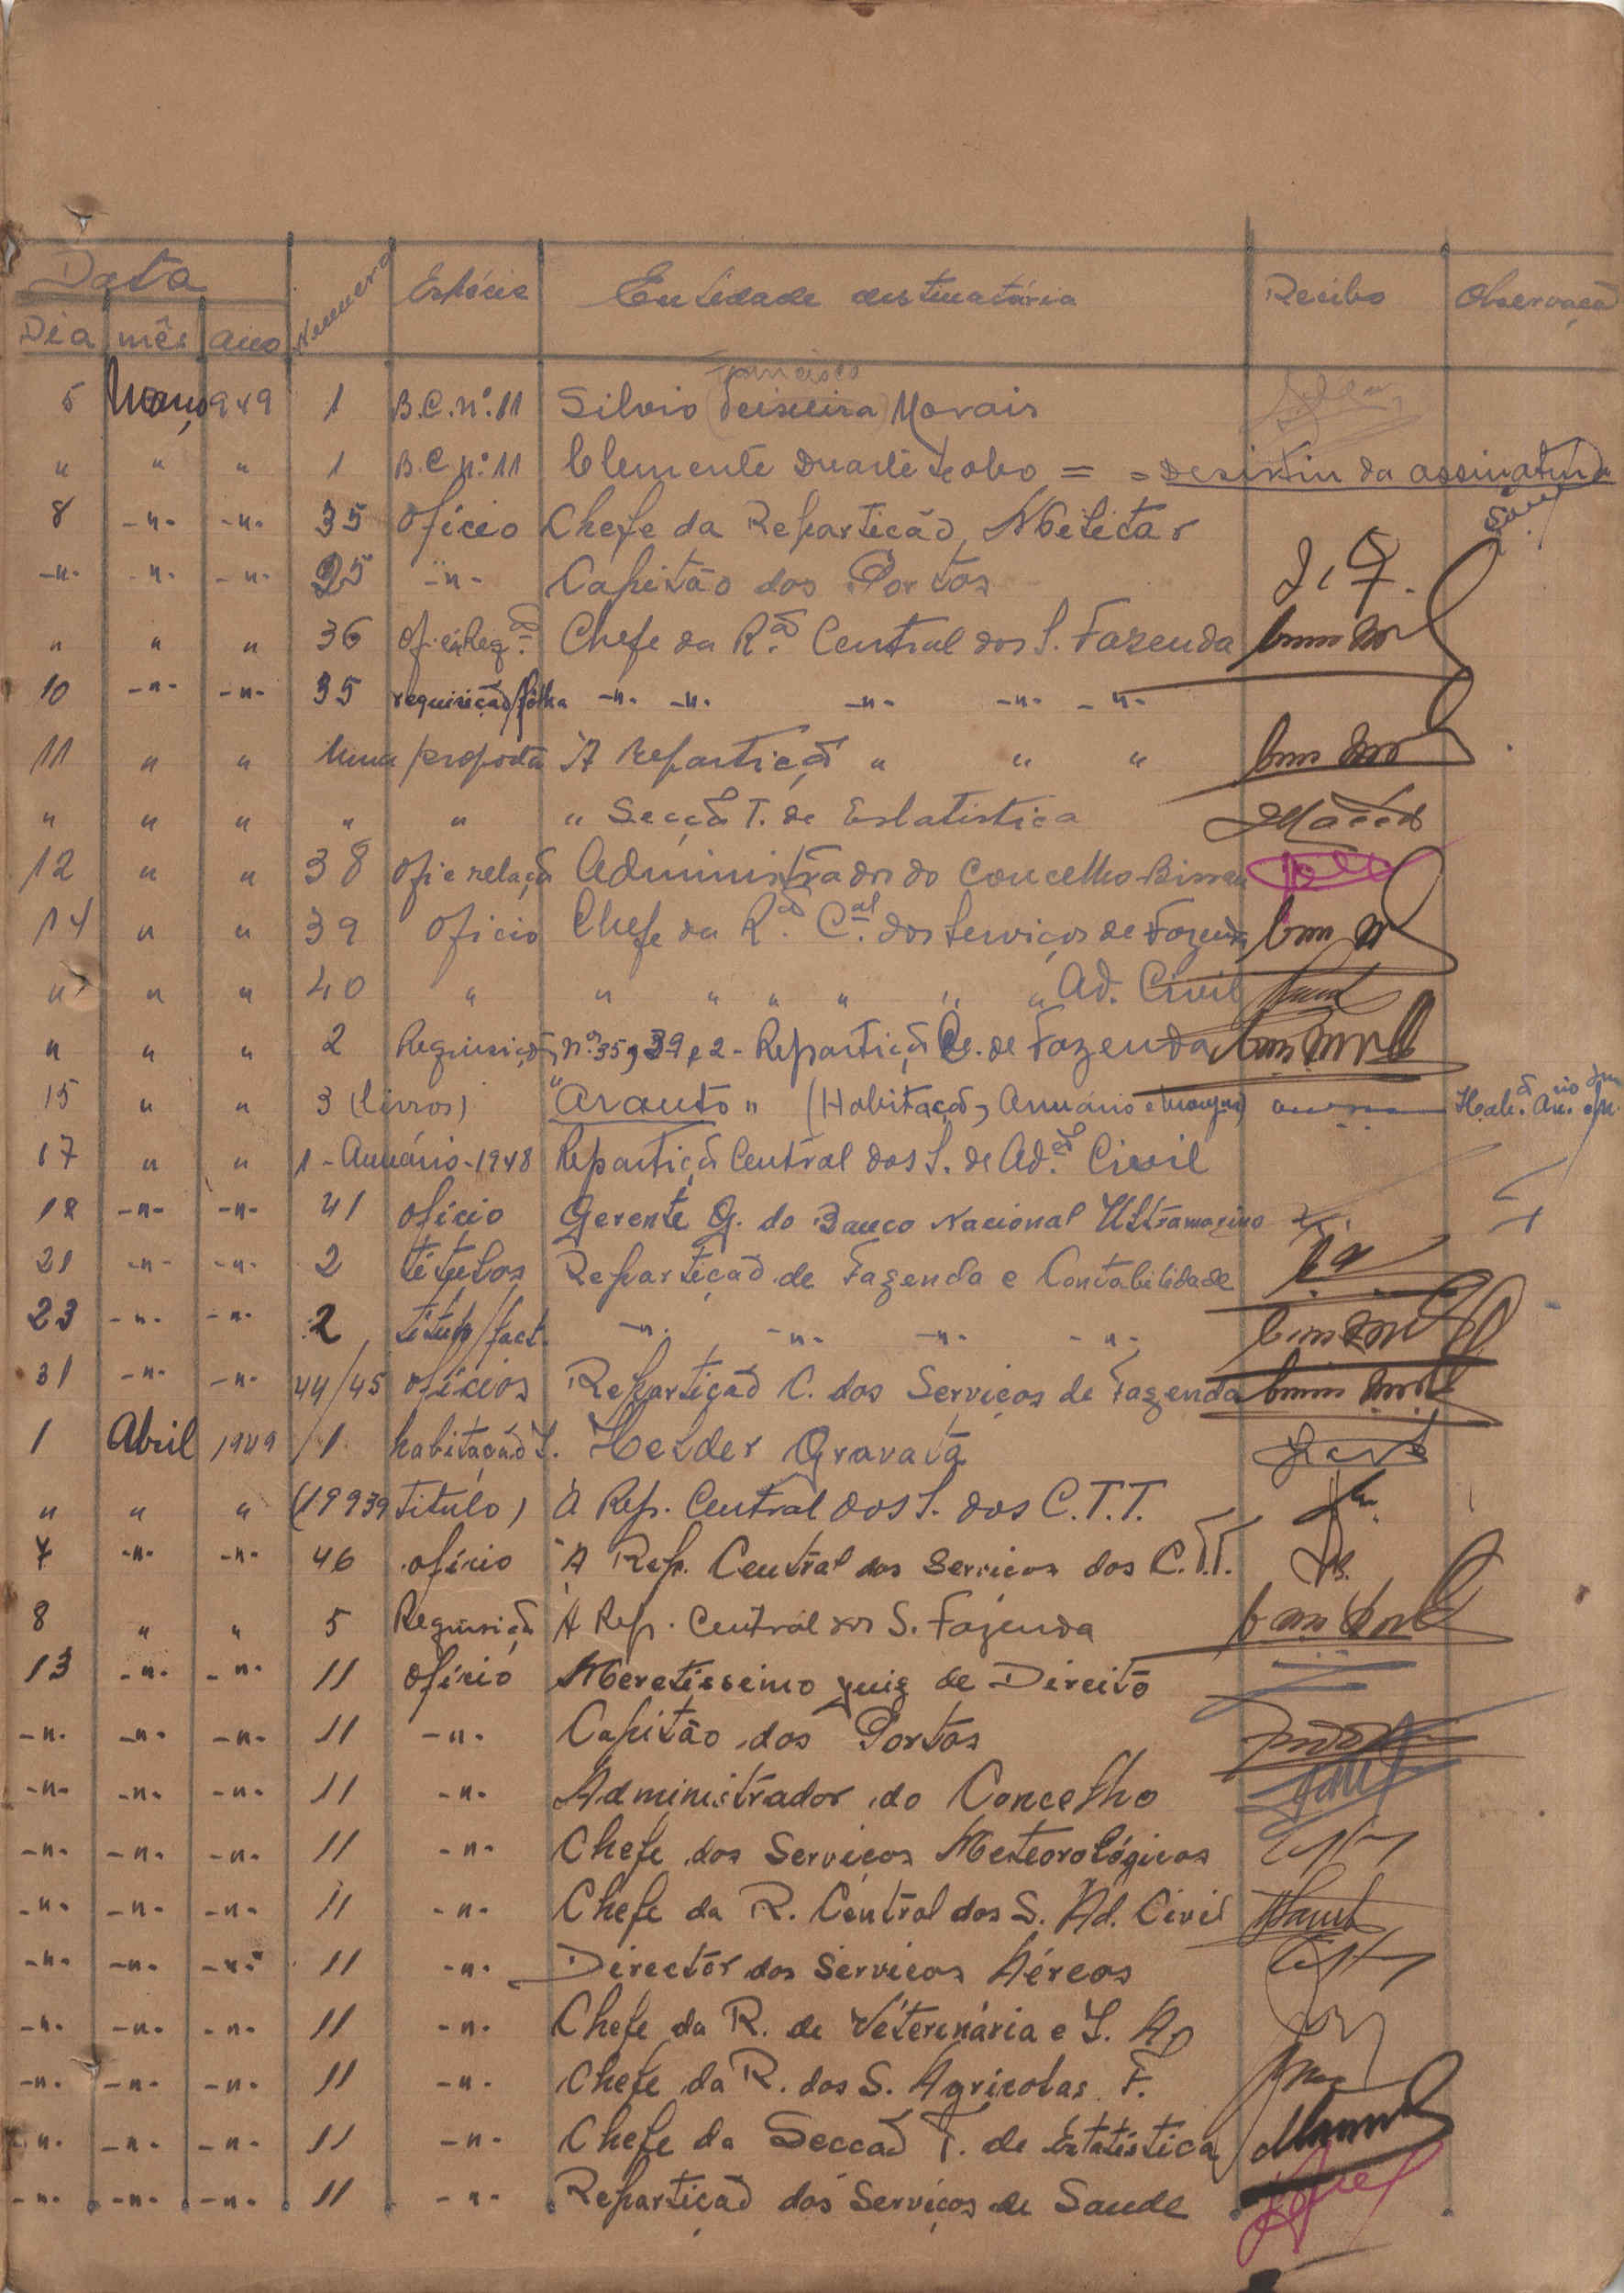 Data Numero Espécie Entidade destinatária Recibo Observação
Dia mês ano
Francisco
5 Março 1949 1 B.C. nº. 11 Silvio (Teixeira) Morais
" " " 1 B.C. nº. 11 Clemente Duarte Lobo = = Desistiu da assinatura
8 -"- -"- 35 Ofício Chefe da Repartição Militar
-"- -"- -"- 35 -"- Capitão dos Portos
" " " 36 Of. e Req. Chefe da R.ão Central dos S. Fazenda
10 -"- -"- 35 requisição/fôlha -"- -"- -"- -"- -"-
11 " " Uma proposta À Repartição " " "
" " " " " " Secção T. de Estatistica
12 " " 38 Of. e relação Administrador do Concelho Bissau
14 " " 39 Oficio Chefe da R.ão C.al dos Serviços de Fazenda
" " " 40 " " " " " " " Ad. Civil
" " " 2 Requisição, nº. 35, 39 e 2 - Repartição Ce. de Fazenda
15 " " 3 (livros) "Arauto" (Habitação, Anuário e
17 " " 1 - Anuário - 1948 Repartição Central dos S. de Ad.ão Civil
18 -"- -"- 41 ofício Gerente G. do Banco Nacional Ultramarino
21 -"- -"- 2 títulos Repartição de Fazenda e Contabilidade
23 -"- -"- 2 título/fact. -"- -"- -"- -"-
31 -"- -"- 44/45 ofícios Repartição C. dos Serviços de Fazenda
1 Abril 1949 1 habitação S. Helder Gravata
" " " (19939 Titulo) À Rep. Central dos S. dos C.T.T.
7 -"- -"- 46 ofício À Rep. Central dos Serviços dos C.T.T.
8 " " 5 Requisição À Rep. Central dos S. Fazenda
13 -"- -"- 11 Ofício Meretíssimo Juiz de Direito
-"- -"- -"- 11 -"- Capitão dos Portos
-"- -"- -"- 11 -"- Administrador do Concelho
-"- -"- -"- 11 -"- Chefe dos Serviços Meteorológicos
-"- -"- -"- 11 -"- Chefe da R. Central dos S. Ad. Civil
-"- -"- -"- 11 -"- Director dos Serviços Aéreos
-"- -"- -"- 11 -"- Chefe da R. de Véterinária e S. A
-"- -"- -"- 11 -"- Chefe da R. dos S. Agricolas F.
-"- -"- -"- 11 -"- Chefe da Secção T. de Estatística
-"- -"- -"- 11 -"- Repartição dos Serviços de Saude